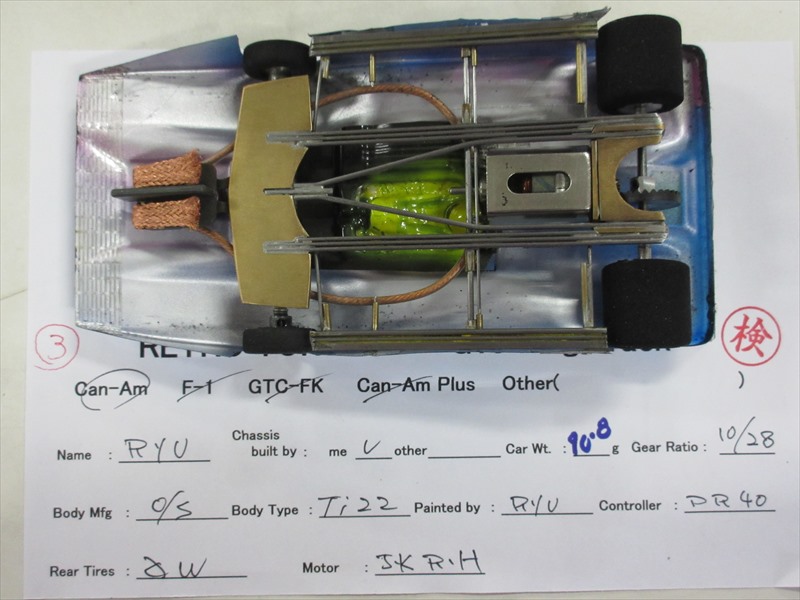 ③
検
Can-Am F-1 GTC-FK Can-Am Plus Other( )
Name : RYU Chassis built by : me ✓ other Car Wt. : 90.8 g Gear Ratio : 10/28
Body Mfg : O/S Body Type : Ti22 Painted by : RYU Controller : DR40
Rear Tires : JW Motor : JK R.H